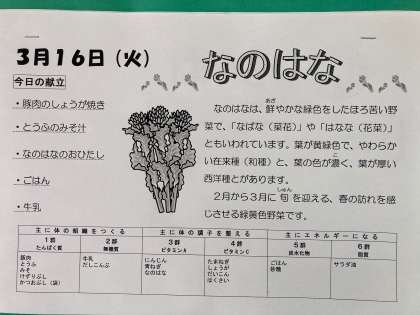 3月16日（火）
なのはな
今日の献立
・豚肉のしょうが焼き
・とうふのみそ汁
・なのはなのおひたし
・ごはん
・牛乳
なのはなは、鮮やかな緑色をしたほろ苦い野
あざ
菜で、「なばな（菜花）」や「はなな（花菜）」
ともいわれています。葉が黄緑色で、やわらか
い在来種（和種）と、葉の色が濃く、葉が厚い
こ
西洋種とがあります。
2月から3月に旬を迎える、春の訪れを感
しゅん
じさせる緑黄色野菜です。
主に体の組織をつくる
主に体の調子を整える
主にエネルギーになる
1群
たんぱく質
2群
無機質
3群
ビタミンA
4群
ビタミンC
5群
炭水化物
6群
脂質
豚肉
とうふ
みそ
けずりぶし
かつおぶし（袋）
牛乳
だしこんぶ
にんじん
青ねぎ
なのはな
たまねぎ
しょうが
だいこん
はくさい
ごはん
砂糖
サラダ油